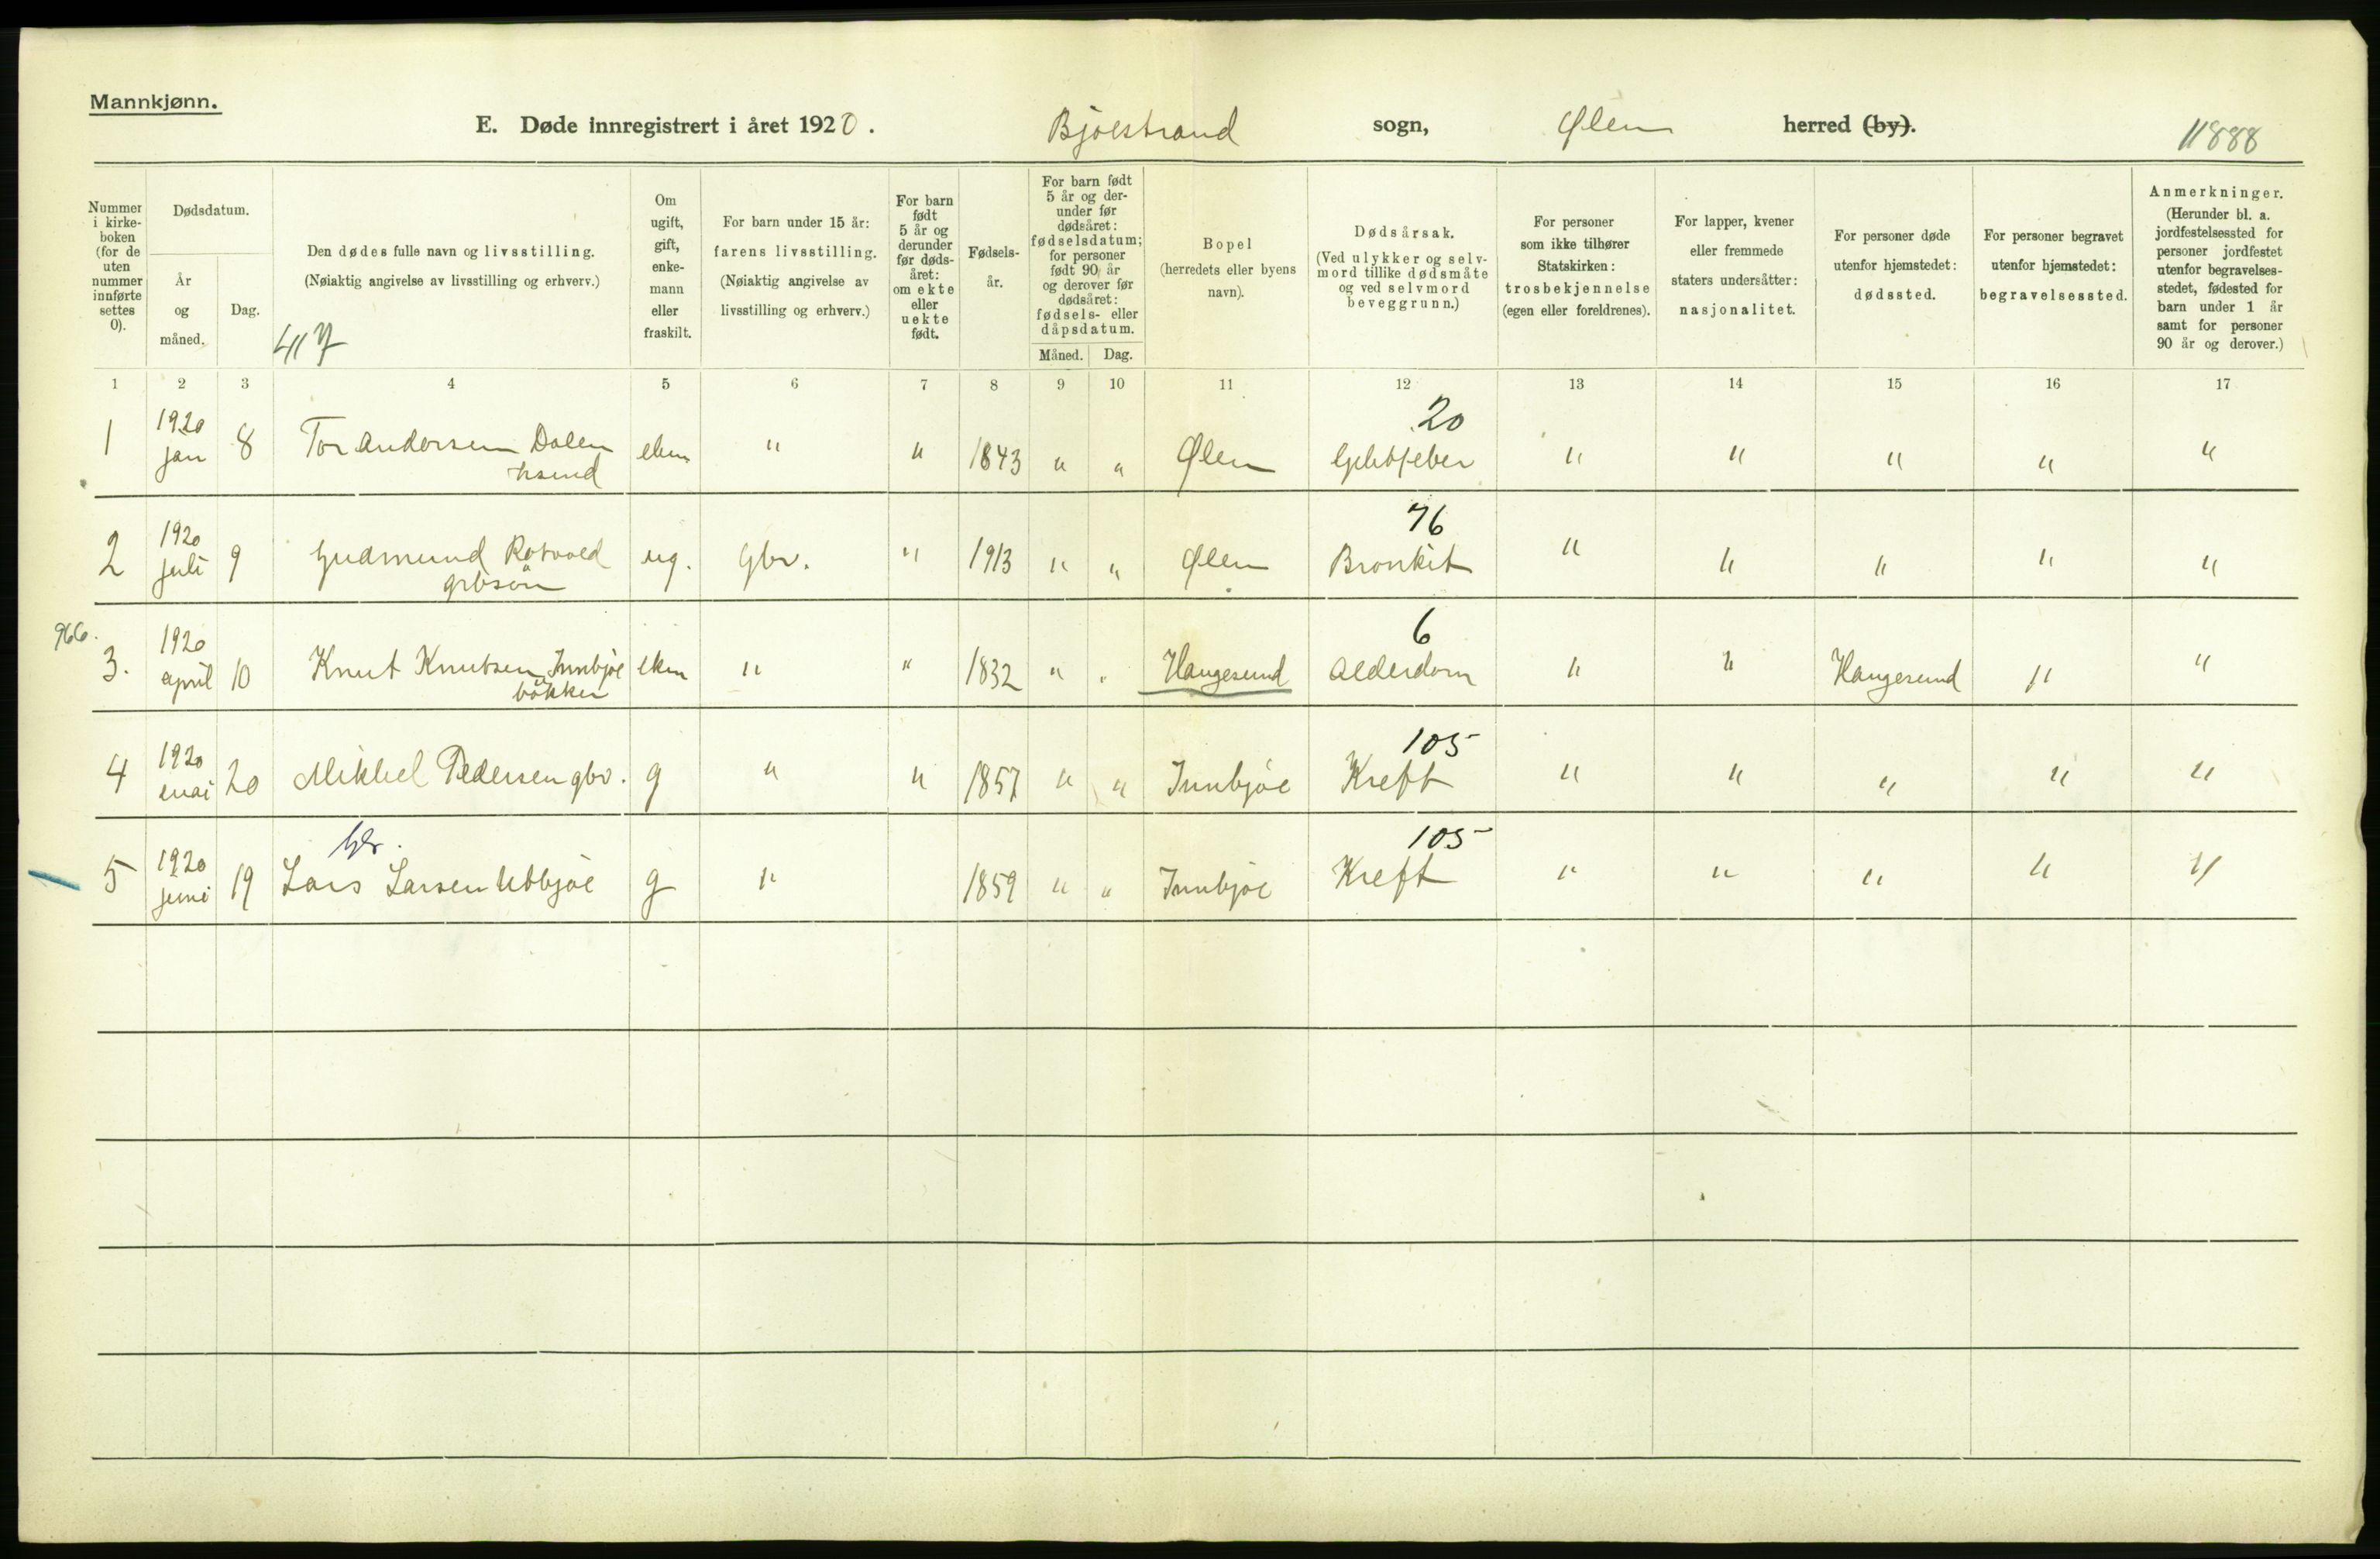 Mannkjønn.
E. Døde innregistrert i året 1920. Bjoestrand sogn, Ølen herred (by). 11888
Nummer i kirkeboken (for de uten nummer innførte settes 0).
Dødsdatum.
År og måned.
Dag.
Den dødes fulle navn og livsstilling.
(Nøiaktig angivelse av livsstilling og erhverv.)
417
Om ugift, gift, enkemann eller fraskilt.
For barn under 15 år: farens livsstilling. (Nøiaktig angivelse av livsstilling og erhverv.)
For barn født 5 år og derunder før dødsåret: om ekte eller uekte født.
Fødselsår.
For barn født 5 år og derunder før dødsåret: fødselsdatum; for personer født 90 år og derover før dødsåret: fødsels- eller dåpsdatum.
Måned. Dag.
Bopel (herredets eller byens navn).
Dødsårsak. (Ved ulykker og selvmord tillike dødsmåte og ved selvmord beveggrunn.)
For personer som ikke tilhører Statskirken: trosbekjennelse (egen eller foreldrenes).
For lapper, kvener eller fremmede staters undersåtter: nasjonalitet.
For personer døde utenfor hjemstedet: dødssted.
For personer begravet utenfor hjemstedet: begravelsessted.
Anmerkninger. (Herunder bl. a. jordfestelsessted for personer jordfestet utenfor begravelsesstedet, fødested for barn under 1 år samt for personer 90 år og derover.)
1 2 3 4 5 6 7 8 9 10 11 12 13 14 15 16 17
20
1 1920 jan 8 Tor Andersen Dalen " " 1843 " " Ølen " " " " "
76
2 1920 juli 9 Gudmund gbrsøn ug. Gbr. " 1913 " " Ølen Bronkit " " " " "
966.
6
3. 1920 april 10 Knut Knutsen Innbjoe bökker ekm " " 1832 " " Haugesund Alderdom " " Haugesund " "
105
4 1920 mai 20 Mikkel Pedersen gbr. g " " 1857 " " Innbjoe Kreft " " " " "
gbr.
105
5 1920 juni 19 Lars Larsen Utbjoe g " 1859 " " Innbjoe Kreft " " " " "